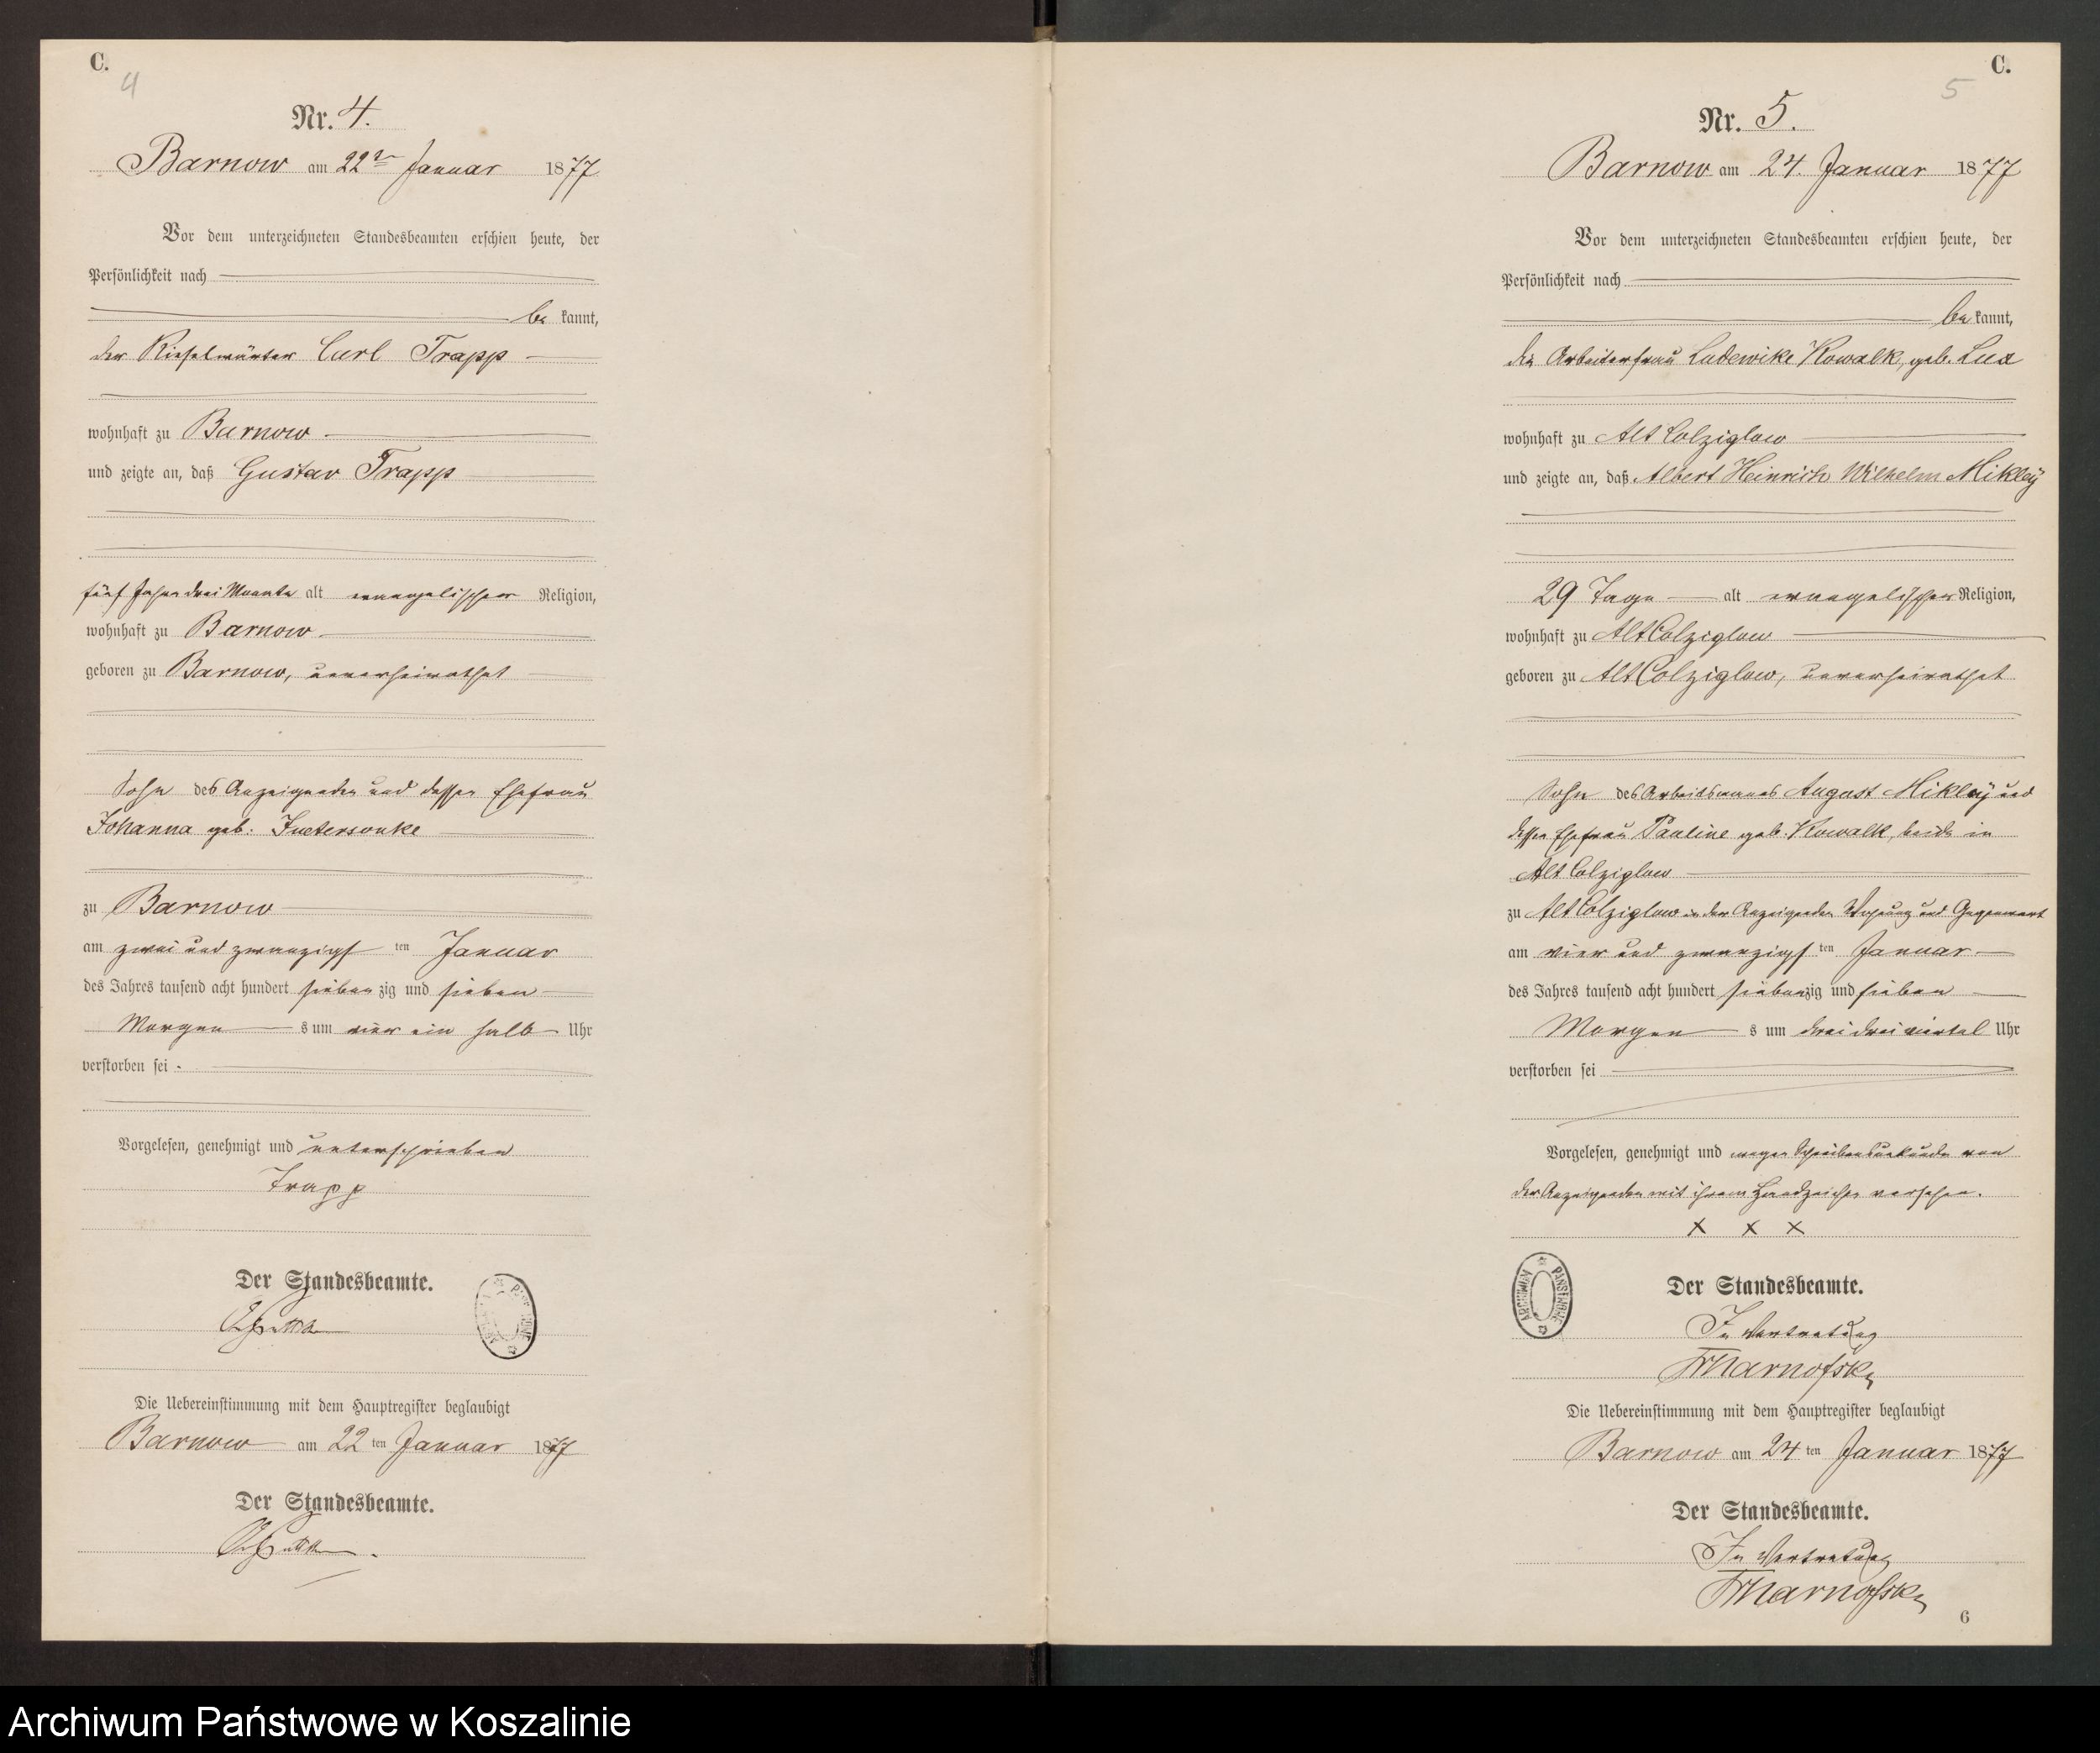 C.
4
Nr. 4.
Barnow am 22ten Januar 1877
Vor dem unterzeichneten Standesbeamten erschien heute, der
Persönlichkeit nach
be kannt,
der Rieselwärter Carl Trapp
wohnhaft zu Barnow
und zeigte an, daß Gustav Trapp
fünf Jahre drei Monate alt evangelischer Religion,
wohnhaft zu Barnow
geboren zu Barnow, unverheirathet
Sohn des Anzeigenden und dessen Ehefrau
Johanna geb.
zu Barnow
am zwei und zwanzigs ten Januar
des Jahres tausend acht hundert sieben zig und sieben
Morgen s um vier ein halb Uhr
verstorben sei.
Vorgelesen, genehmigt und unterschrieben
Trapp
Der Standesbeamte.
Die Uebereinstimmung mit dem Hauptregister beglaubigt
Barnow am 22 ten Januar 1877
Der Standesbeamte.
C.
5
Nr. 5.
Barnow am 24. Januar 1877
Vor dem unterzeichneten Standesbeamten erschien heute, der
Persönlichkeit nach
be kannt,
die Arbeiterfrau Ludewike Kowalk, geb. Lux
wohnhaft zu Alt Colziglow
und zeigte an, daß Albert Heinrich Wilhelm Mikley
29 Tage alt evangelischer Religion,
wohnhaft zu Alt Colziglow
geboren zu Alt Colziglow, unverheirathet
Sohn des Arbeitsmannes August Mikley und
dessen Ehefrau Pauline geb. Kowalk, beide in
Alt Colziglow
zu Alt Colziglow in der Anzeigenden Wohnung und Gegenwart
am vier und zwanzigs ten Januar
des Jahres tausend acht hundert siebenzig und sieben
Morgen s um drei dreiviertel Uhr
verstorben sei
Vorgelesen, genehmigt und wegen Schreibensunkunde von
der Anzeigenden mit ihrem Handzeichen versehen.
X X X
ARCHIWUM PAŃSTWOWE
Der Standesbeamte.
In Vertretung
Die Uebereinstimmung mit dem Hauptregister beglaubigt
Barnow am 24 ten Januar 1877
Der Standesbeamte.
In Vertretung
6
Archiwum Państwowe w Koszalinie